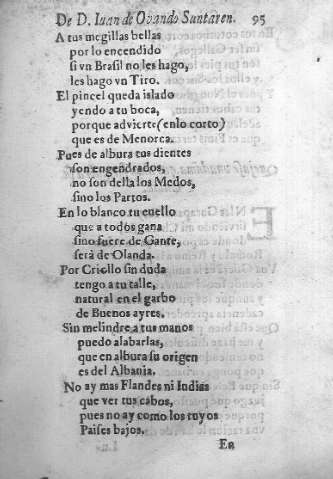 De D. Iuan de Ovando Santaren. 95
A tus megillas bellas
por lo encendido
si vn Brasil no les hago,
les hago vn Tiro.
El pincel queda islado
yendo a tu boca,
porque advierte (enlo corto)
que es de Menorca.
Pues de albura tus dientes
son engendrados,
no son della los Medos,
sino los Partos.
En lo blanco tu cuello
que a todos gana
sino fuere de Gante,
será de Olanda.
Por Criollo sin duda
tengo a tu talle,
natural en el garbo
de Buenos ayres.
Sin melindre a tus manos
puedo alabarlas,
que en albura su origen
es del Albania.
No ay mas Flandes ni Indias
que ver tus cabos,
pues no ay como los tuyos
Paises bajos.
En